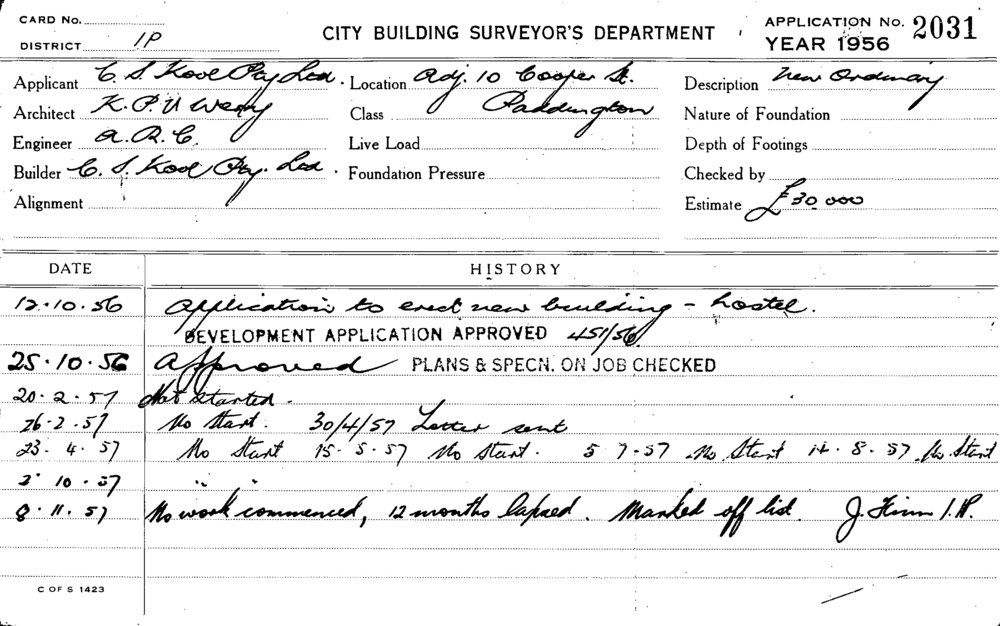 CARD No.
DISTRICT 1P
CITY BUILDING SURVEYOR'S DEPARTMENT
APPLICATION No. 2031
YEAR 1956
Applicant C. S. Kool Pty Ltd. Location Adj. 10 Cooper St. Description New Ordinary
Architect K. P. Class Paddington Nature of Foundation
Engineer A. R. C. Live Load Depth of Footings
Builder C. S. Kool Pty. Ltd. Foundation Pressure Checked by
Alignment Estimate £30,000
DATE HISTORY
12.10.56 Application to erect new building - hostel.
DEVELOPMENT APPLICATION APPROVED 451/56
25.10.56 Approved PLANS & SPECN. ON JOB CHECKED
20.2.57 Not started.
26.2.57 No Start. 30/4/57 Letter sent
23.4.57 No Start 15.5.57 No Start. 5 7.57 No Start 14.8.57 No Start
10.57 " "
8.11.57 No work commenced, 12 months lapsed. Marked off list. J. Finn I.P.
C OF S 1423